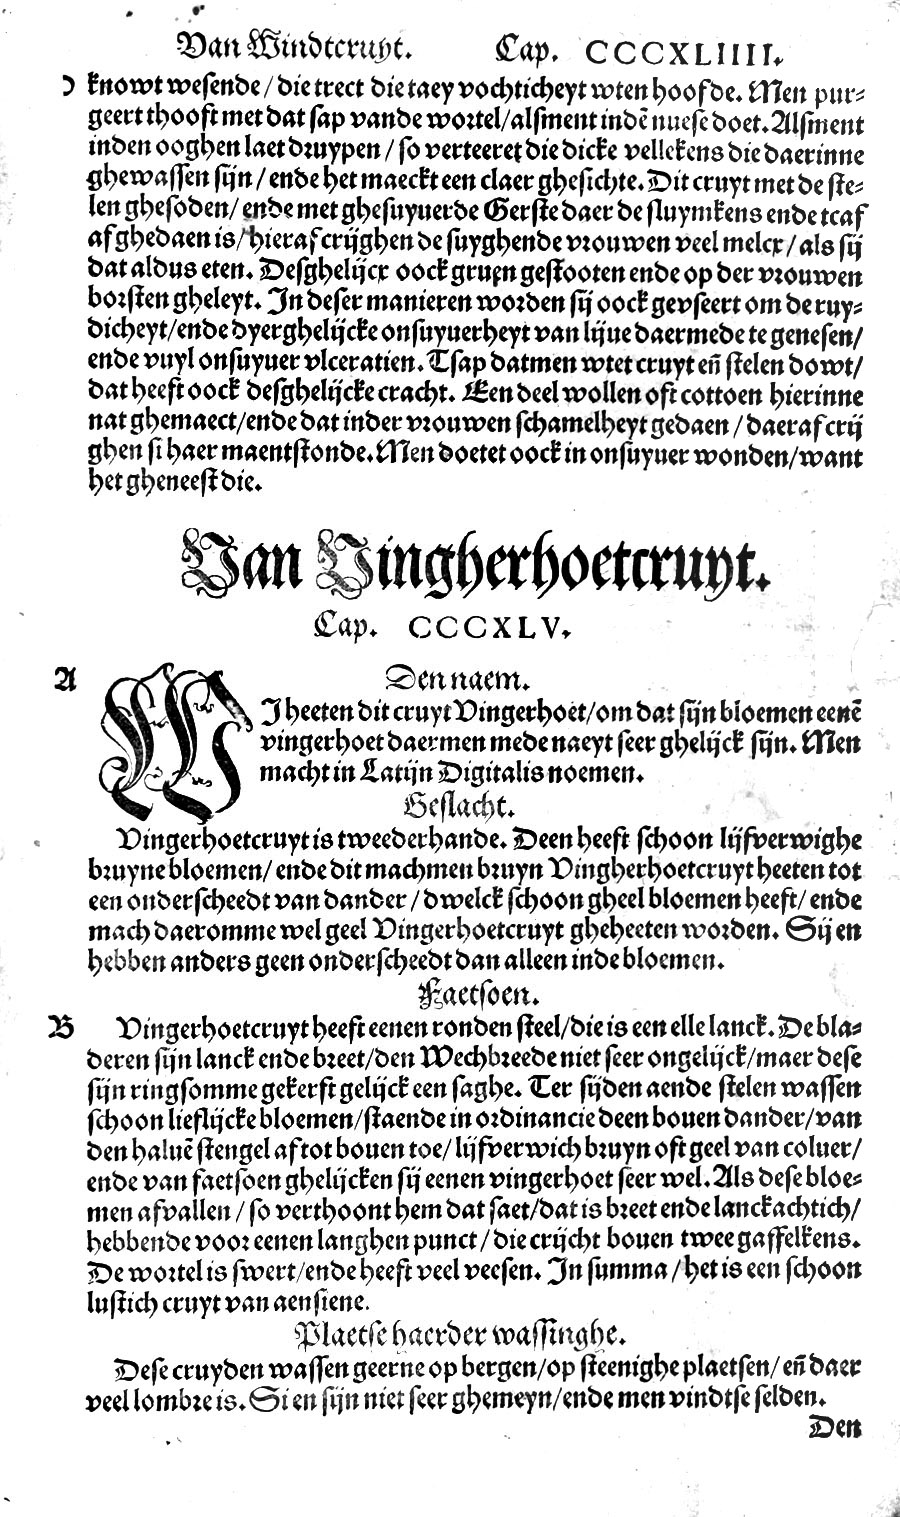 Van Windtcruyt. Cap. CCCXLIIII.
knowt wesende/ die trect die taey vochticheyt wten hoofde. Men pur⸗
geert thooft met dat sap vande wortel/alsment indē nuese doet. Alsment
inden ooghen laet druypen/ so verteeret die dicke vellekens die daerinne
ghewassen sijn/ ende het maeckt een claer ghesichte. Dit cruyt met de ste⸗
len ghesoden/ ende met ghesuyuerde Gerste daer de sluymkens ende tcaf
afghedaen is/ hieraf crijghen de suyghende vrouwen veel melcx/ als sij
dat aldus eten. Desghelijcx oock gruen gestooten ende op der vrouwen
borsten gheleyt. In deser manieren worden sij oock gevseert om de ruy⸗
dicheyt/ende dyerghelijcke onsuyuerheyt van lijue daermede te genesen/
ende vuyl onsuyuer vlceratien. Tsap datmen wtet cruyt eñ stelen dowt/
dat heeft oock desghelijcke cracht. Een deel wollen oft cottoen hierinne
nat ghemaect/ende dat inder vrouwen schamelheyt gedaen/ daeraf crij
ghen si haer maentstonde. Men doetet oock in onsuyuer wonden/want
het gheneest die.
Van Vingherhoetcruyt.
Cap. CCCXLV.
A Den naem.
WIheeten dit cruyt Vingerhoet/om dat sijn bloemen eenē
vingerhoet daermen mede naeyt seer ghelijck sijn. Men
macht in Latijn Digitalis noemen.
Geslacht.
Vingerhoetcruyt is tweederhande. Deen heeft schoon lijfverwighe
bruyne bloemen/ ende dit machmen bruyn Vingherhoetcruyt heeten tot
een onderscheedt van dander/ dwelck schoon gheel bloemen heeft/ ende
mach daeromme wel geel Vingerhoetcruyt gheheeten worden. Sij en
hebben anders geen onderscheedt dan alleen inde bloemen.
Faetsoen.
B Vingerhoetcruyt heeft eenen ronden steel/die is een elle lanck. De bla⸗
deren sijn lanck ende breet/den Wechbreede niet seer ongelijck/maer dese
sijn ringsomme gekerft gelijck een saghe. Ter sijden aende stelen wassen
schoon lieflijcke bloemen/staende in ordinancie deen bouen dander/van
den haluē stengel af tot bouen toe/ lijfverwich bruyn oft geel van coluer/
ende van faetsoen ghelijcken sij eenen vingerhoet seer wel. Als dese bloe⸗
men afvallen/ so verthoont hem dat saet/dat is breet ende lanckachtich/
hebbende voor eenen langhen punct/ die crijcht bouen twee gaffelkens.
De wortel is swert/ende heeft veel veesen. In summa/ het is een schoon
lustich cruyt van aensiene.
Plaetse haerder wassinghe.
Dese cruyden wassen geerne op bergen/op steenighe plaetsen/ eñ daer
veel lombre is. Si en sijn niet seer ghemeyn/ende men vindtse selden.
Den